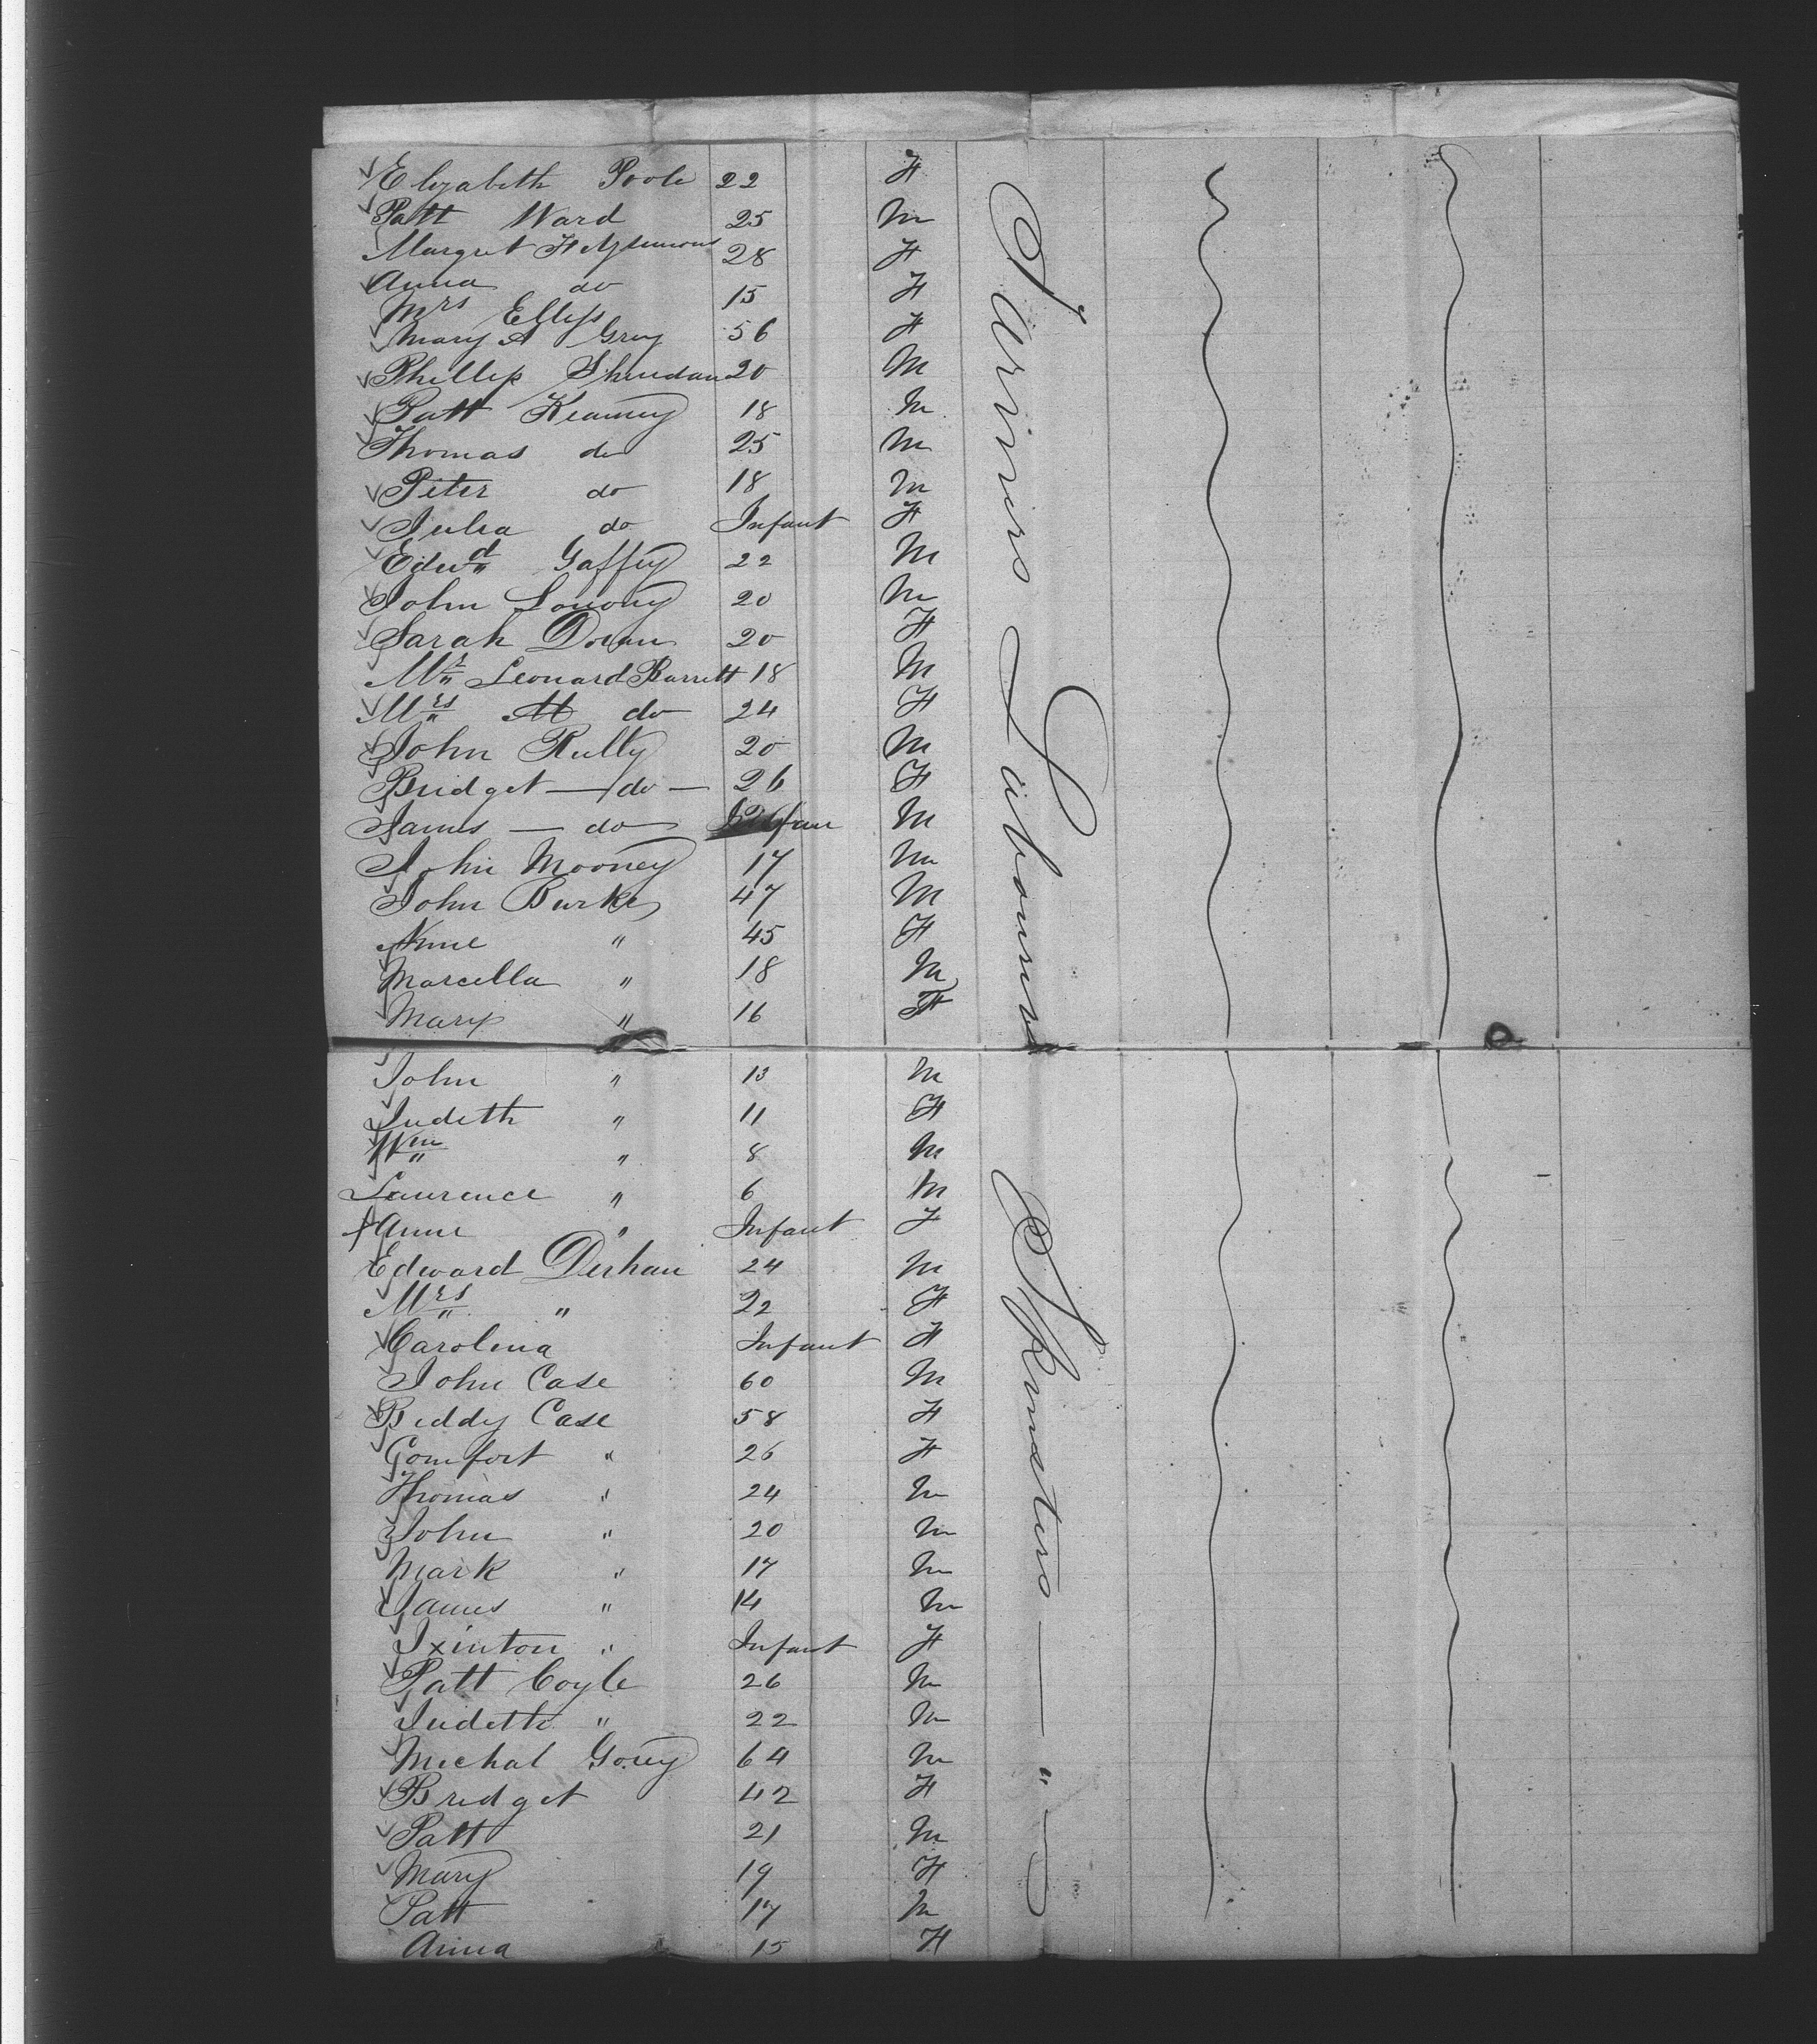 Elizabeth Poole 22 F
Patt Ward 25 M
Margret Fitzsimons 28 F
Anna do 15 F
Mrs Elliss
Mary A Gray 56 F
Phillip Sheridan 20 M
Patt Kearney 18 M
Thomas do 25 M
Peter do 18 M
Julia do Infant F
Edwd Gaffey 22 M
John 20 M
Sarah Doran 20 F
Mr Leonard Barrett 18 M
Mrs M do 24 F
John Rully 20 M
Bridget — do — 26 F
James — do M
John Mooney 17 M
John Burke 47 M
Anne " 45 F
Marcella " 18 M
Mary " 16 F
John " 13 M
Judeth " 11 F
Wm " 8 M
Laurence " 6 M
Anne " Infant F
Edward Derhan 24 M
Mrs " 22 F
Carolina Infant F
John Case 60 M
Biddy Case 58 F
Comfort " 26 F
Thomas " 24 M
John " 20 M
Mark " 17 M
James " 14 M
" Infant F
Patt Coyle 26 M
Judeth " 22 M
Michal Gouy 64 M
Bridget 42 F
Patt 21 M
Mary 19 F
Patt 17 M
Anna 15 F
Farmers Labourers
Spinsters — " —